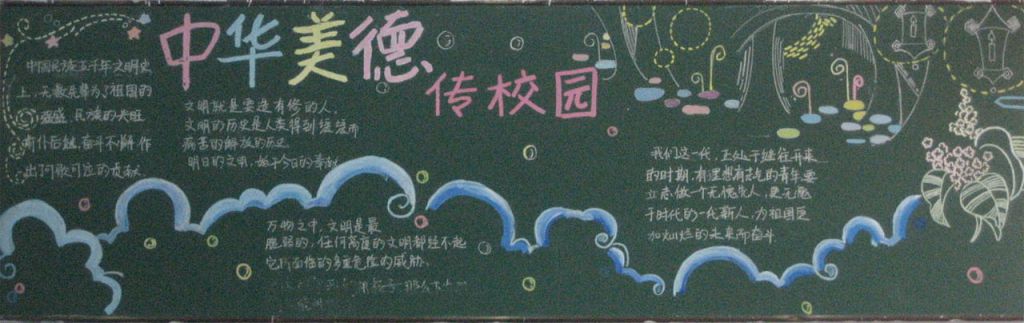 中华美德
传校园
中国民族五千年文明史
上,无数先辈为了祖国的
强盛,民族的兴旺
前仆后继,奋斗不懈,作
出了可歌可泣的贡献
文明就是要造有修的人.
文明的历史是人类得到
病苦的解放的历史
明日的文明,始于今日的奉献
万物之中,文明是最
脆弱的,任何高度的文明都经不起
它所面临的多重危险的威胁.
我们这一代,正处于继往开来
的时期,有理想有志气的青年,要
立志做一个无愧先人,更无愧
于时代的一代新人,为祖国更
加灿烂的未来而奋斗